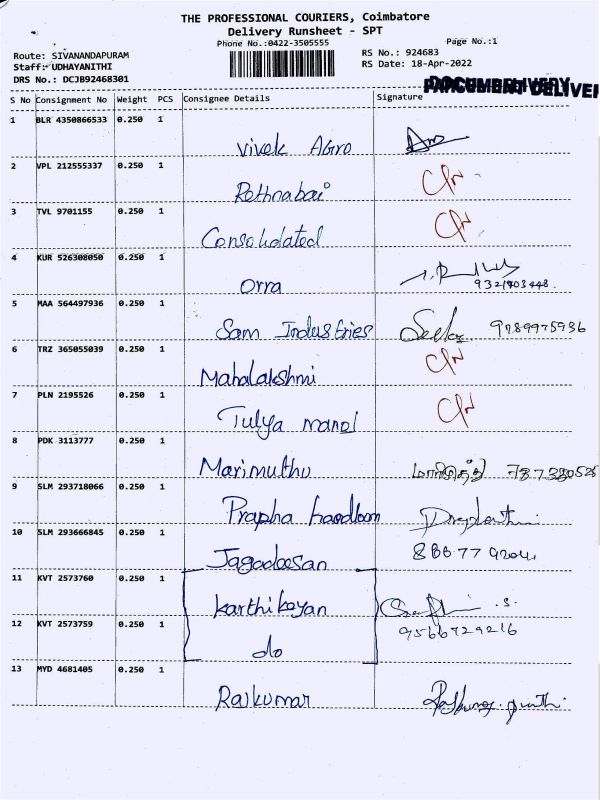 THE PROFESSIONAL COURIERS, Coimbatore
Delivery Runsheet - SPT
Phone No.:0422-3505555 Page No.:1
Route: SIVANANDAPURAM RS No.: 924683
Staff: UDHAYANITHI RS Date: 18-Apr-2022
DRS No.: DCJB92468301
S No Consignment No Weight PCS Consignee Details Signature
1 BLR 4350866533 0.250 1
Vivek Agro
2 VPL 212555337 0.250 1
Rethnabai
3 TVL 9701155 0.250 1
Consolidated
4 KUR 526308050 0.250 1
Orra
5 MAA 564497936 0.250 1
Sam Industries 9789975936
6 TRZ 365055039 0.250 1
Mahalakshmi
7 PLN 2195526 0.250 1
Tulya
8 PDK 3113777 0.250 1
Marimuthu
9 SLM 293718066 0.250 1
Prapha handloom
10 SLM 293666845 0.250 1
Jagadeesan
11 KVT 2573760 0.250 1
Karthikeyan
9566729216
12 KVT 2573759 0.250 1
do
13 MYD 4681405 0.250 1
Rajkumar